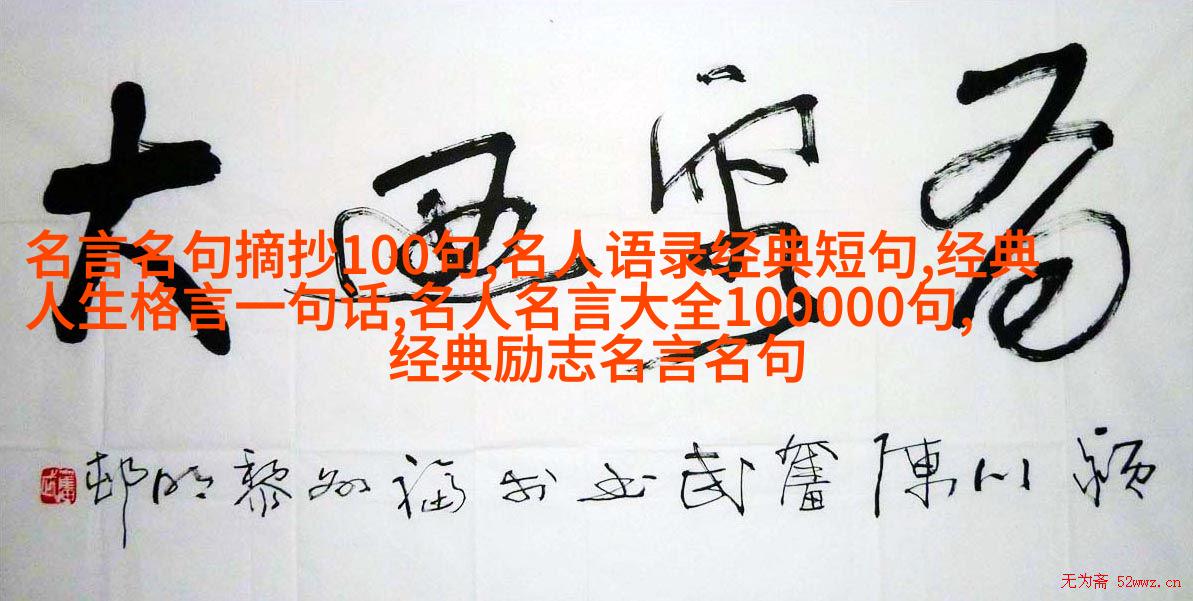 大
名言名句摘抄100句,名人语录经典短句,经典
人生格言一句话,名人名言大全100000句,
经典励志名言名句
潁川陳奮武书於福州黎明邨
无为斋 52wwz.cn